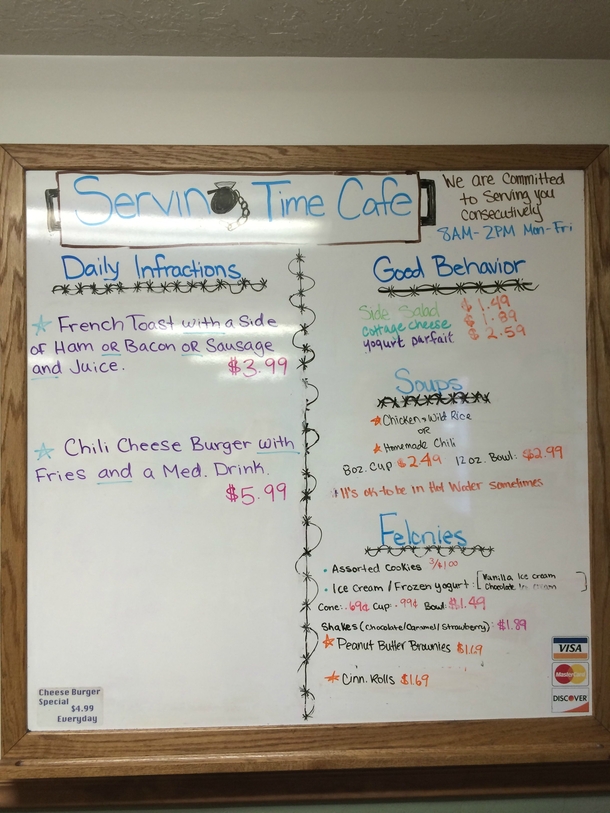 Servin Time Cafe
We are committed
to serving you
consecutively
8AM-2PM Mon-Fri
Daily Infractions
French Toast with a Side
of Ham OR Bacon OR Sausage
and Juice. $3.99
Chili Cheese Burger with
Fries and a Med. Drink.
$5.99
Cheese Burger
Special
$4.99
Everyday
Good Behavior
Side Salad $1.49
cottage cheese $1.89
yogurt parfait $2.59
Soups
Chicken & Wild Rice
OR
Homemade Chili
8oz. Cup $2.49 12oz. Bowl: $2.99
It's ok to be in Hot Water sometimes
Felonies
Assorted Cookies 3/$1.00
Ice Cream / Frozen yogurt: [Vanilla Ice cream
Chocolate Ice cream]
Cone: .69¢ Cup .99¢ Bowl: $1.49
Shakes (Chocolate/Caramel/Strawberry): $1.89
Peanut Butter Brownies $1.69
Cinn. Rolls $1.69
VISA
MasterCard
DISCOVER